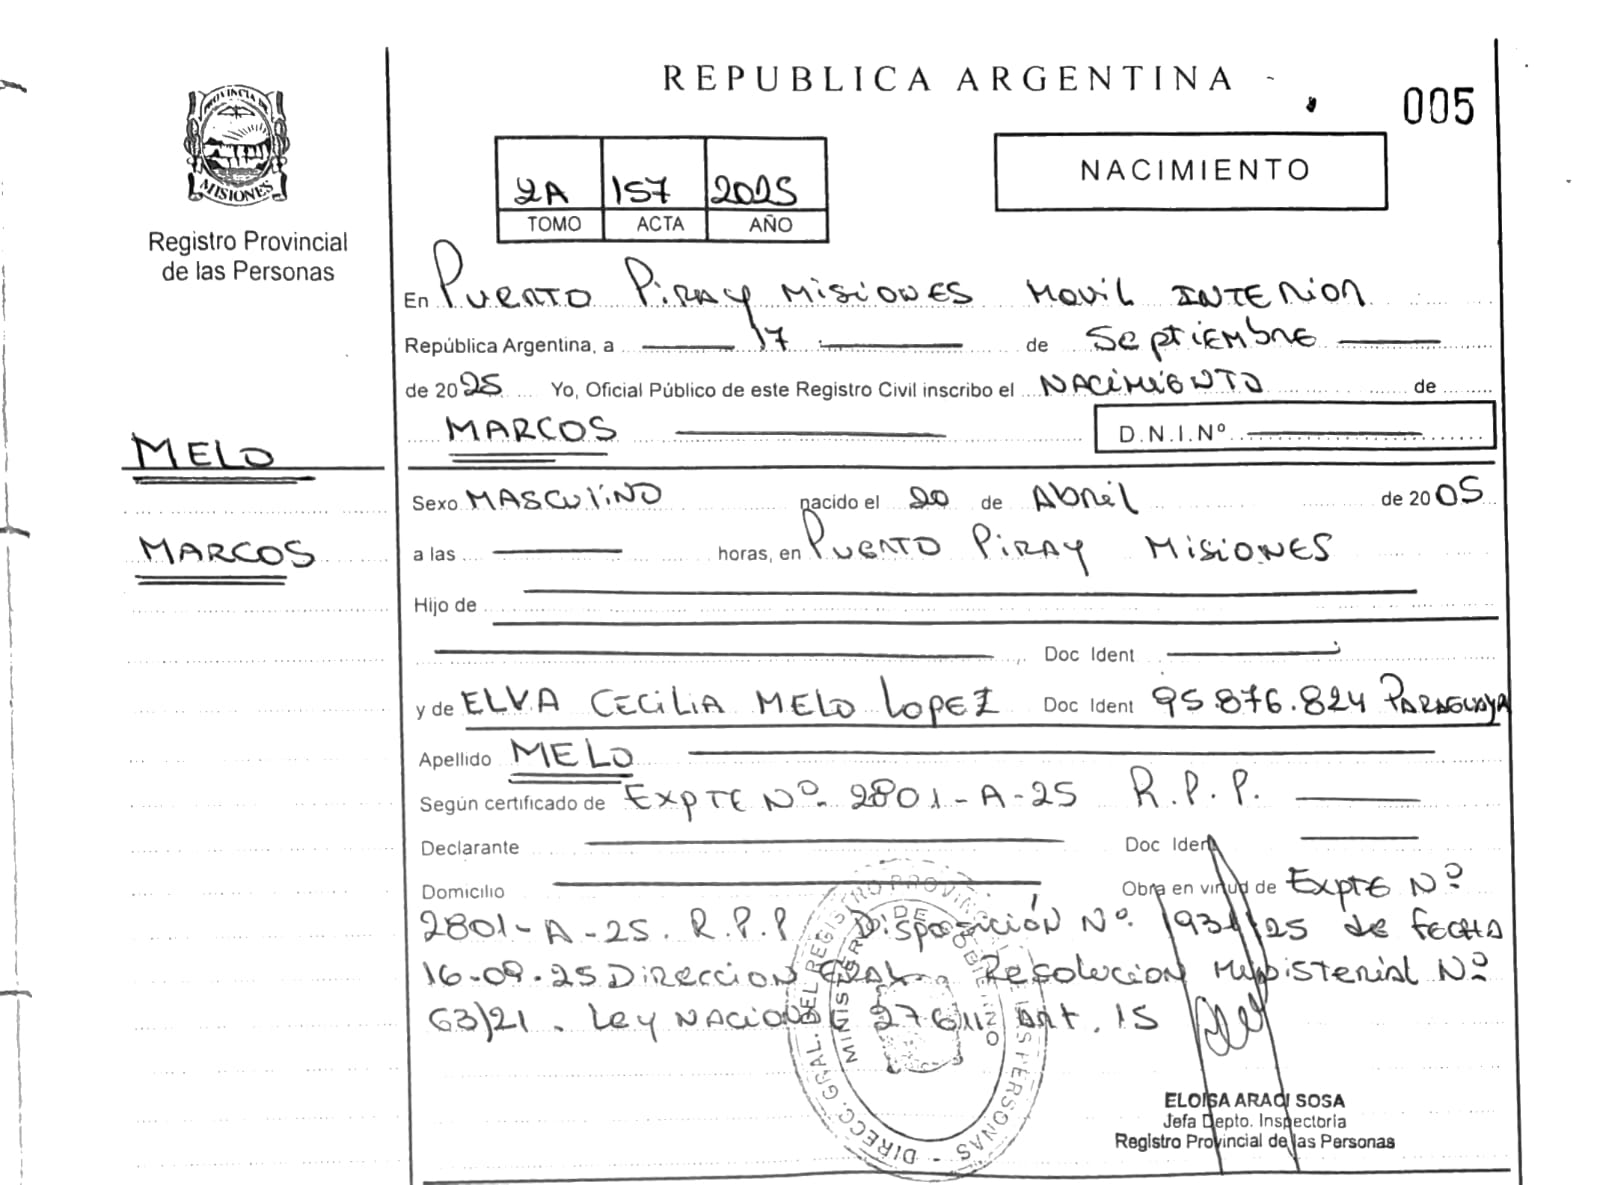 REPUBLICA ARGENTINA
005
PROVINCIA DE
MISIONES
Registro Provincial
de las Personas
2A 157 2025
TOMO ACTA AÑO
NACIMIENTO
En Puerto Piray Misiones Movil Interior
República Argentina, a 17 de Septiembre
de 2025 Yo, Oficial Público de este Registro Civil inscribo el Nacimiento de
MARCOS D.N.I.Nº
MELO
MARCOS
Sexo Masculino nacido el 20 de Abril de 2005
a las horas, en Puerto Piray Misiones
Hijo de
Doc Ident
y de ELVA CECILIA MELO LOPEZ Doc Ident 95.876.824 Paraguaya
Apellido MELO
Según certificado de Expte Nº 2801-A-25 R.P.P.
Declarante Doc Ident
Domicilio Obra en virtud de Expte Nº
2801-A-25. R.P.P Disposición Nº 1931/25 de fecha
16-09-25 Direccion Gral. Resolucion Ministerial Nº
63/21. Ley Nacional 27611 Art. 15
DIRECC. GRAL. DEL REGISTRO PROVINCIAL DE LAS PERSONAS
MINISTERIO DE GOBIERNO
ELOISA ARACI SOSA
Jefa Depto. Inspectoria
Registro Provincial de las Personas